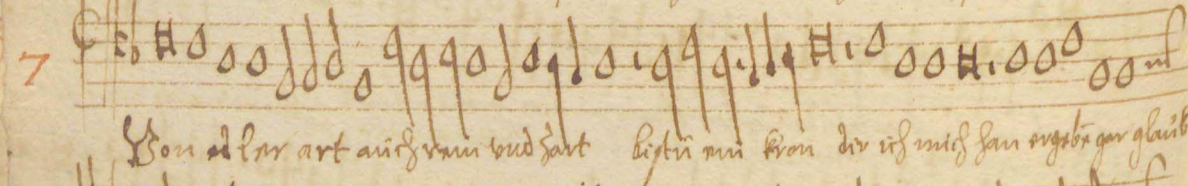 7
Von edler art auch rein vnd zart bistu ein kron dir ich mich han ergebē gar glaub